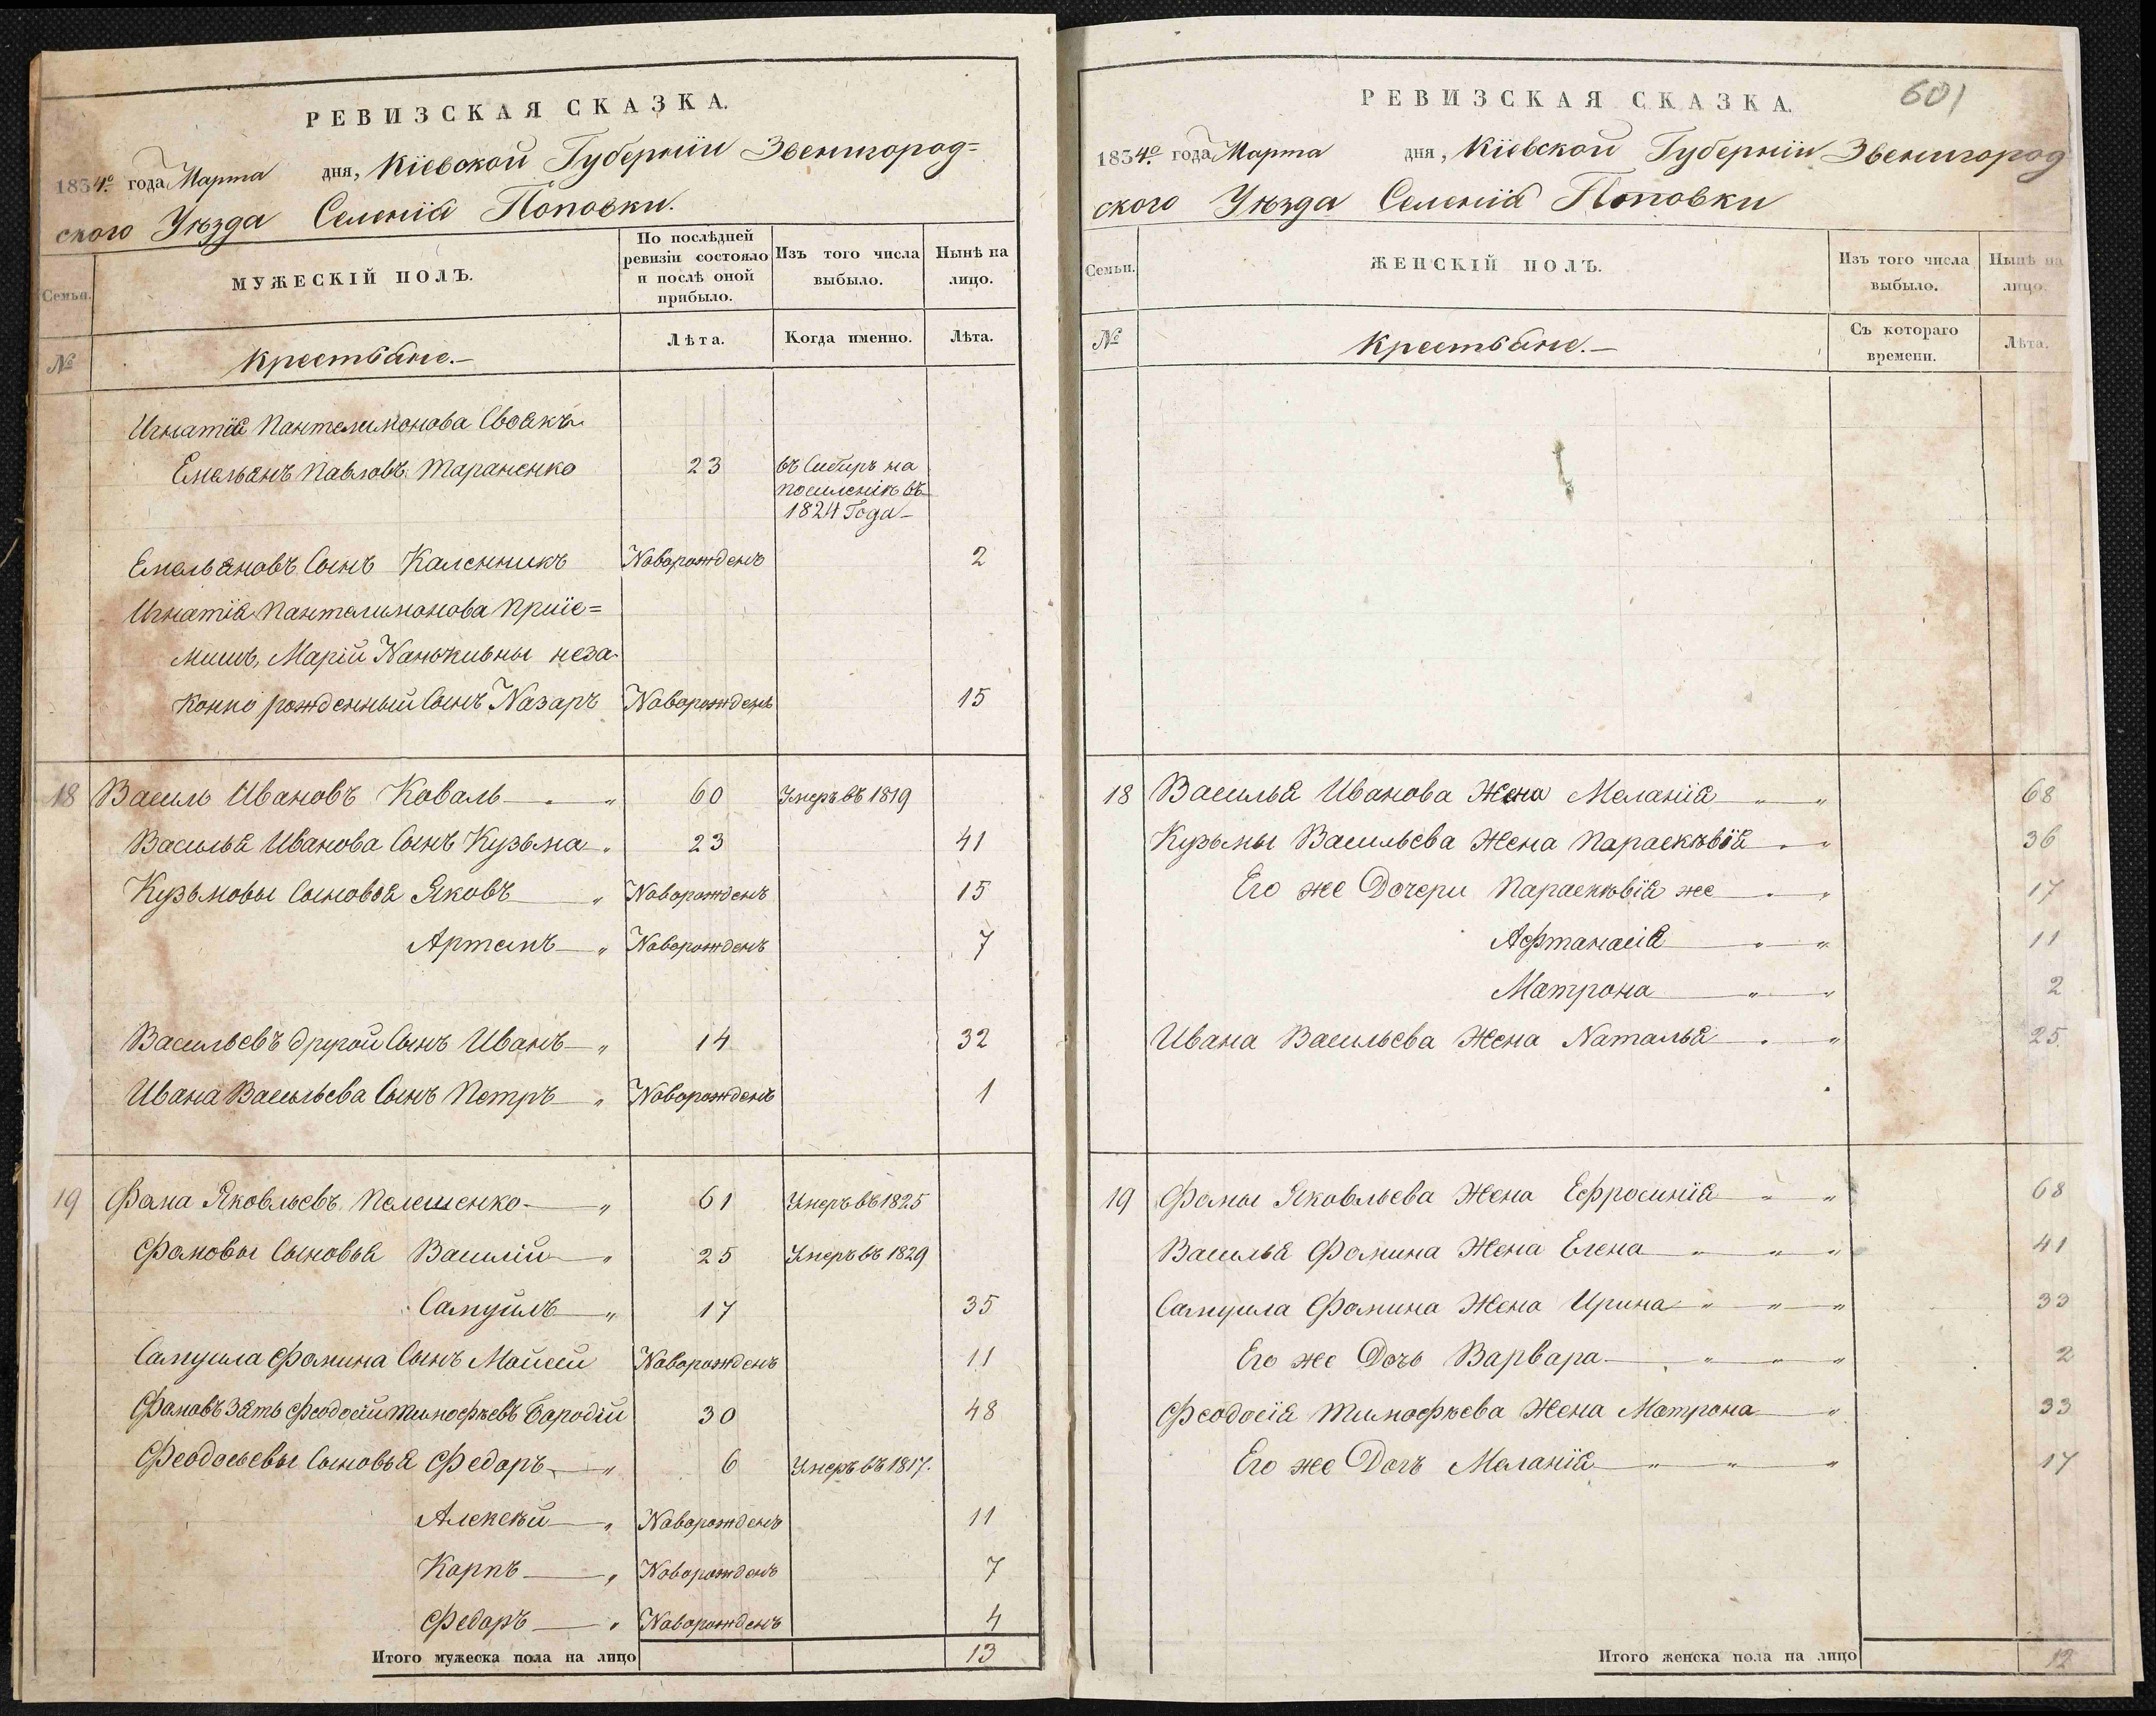 РЕВИЗСКАЯ СКАЗКА.
1834го года Марта дня, Кіевской Губерніи Звенигород=
ского Уѣзда Селенія Поповки.
Семьи. МУЖЕСКІЙ ПОЛЪ. По послѣдней ревизіи состояло и послѣ оной прибыло. Изъ того числа выбыло. Нынѣ на лицо.
№ Крестьяне.— Лѣта. Когда именно. Лѣта.
Игнатія Пантелимонова Своякъ
Емельянъ Павловъ Тараненко 23 въ Сибирь на
поселеніе въ
1824 Года
Емельяновъ Сынъ Каленникъ Новорожденъ 2
Игнатія Пантелимонова пріе=
мишъ, Маріи Ханькивны неза
конно рожденный Сынъ Назаръ Новорожденъ 15
18 Василь Ивановъ Коваль 60 Умеръ въ 1819
Василья Иванова Сынъ Кузьма 23 41
Кузьмовы Сыновья Яковъ Новорожденъ 15
Артемъ Новорожденъ 7
Васильевъ другой Сынъ Иванъ 14 32
Ивана Васильева Сынъ Петръ Новорожденъ 1
19 Фома Яковлевъ Пелешенко 61 Умеръ въ 1825
Фомовы Сыновья Василій 25 Умеръ въ 1829
Самуилъ 17 35
Самуила Фомина Сынъ Моисей Новорожденъ 11
Фомовъ Зять Феодосій Тимофѣевъ Бородій 30 48
Феодосьевы Сыновья Федоръ 6 Умеръ въ 1817.
Алексѣй Новорожденъ 11
Карпъ Новорожденъ 7
Федоръ Новорожденъ 4
Итого мужеска пола на лицо 13
601
РЕВИЗСКАЯ СКАЗКА.
1834го года Марта дня, Кіевской Губерніи Звенигород
ского Уѣзда Селенія Поповки
Семьи. ЖЕНСКІЙ ПОЛЪ. Изъ того числа выбыло. Нынѣ на лицо.
№ Крестьяне.— Съ котораго времени. Лѣта.
18 Василья Иванова Жена Меланія 68
Кузьмы Васильева Жена Параскѣвія 36
Его же Дочери Параскѣвія же 17
Афтанасія 11
Матрона 2
Ивана Васильева Жена Наталья 25.
19 Фомы Яковлева Жена Ефросинія 68
Василья Фомина Жена Елена 41
Самуила Фомина Жена Ирина 33
Его же Дочь Варвара 2
Феодосія Тимофѣева Жена Матрона 33
Его же Дочь Меланія 17
Итого женска пола на лицо 12